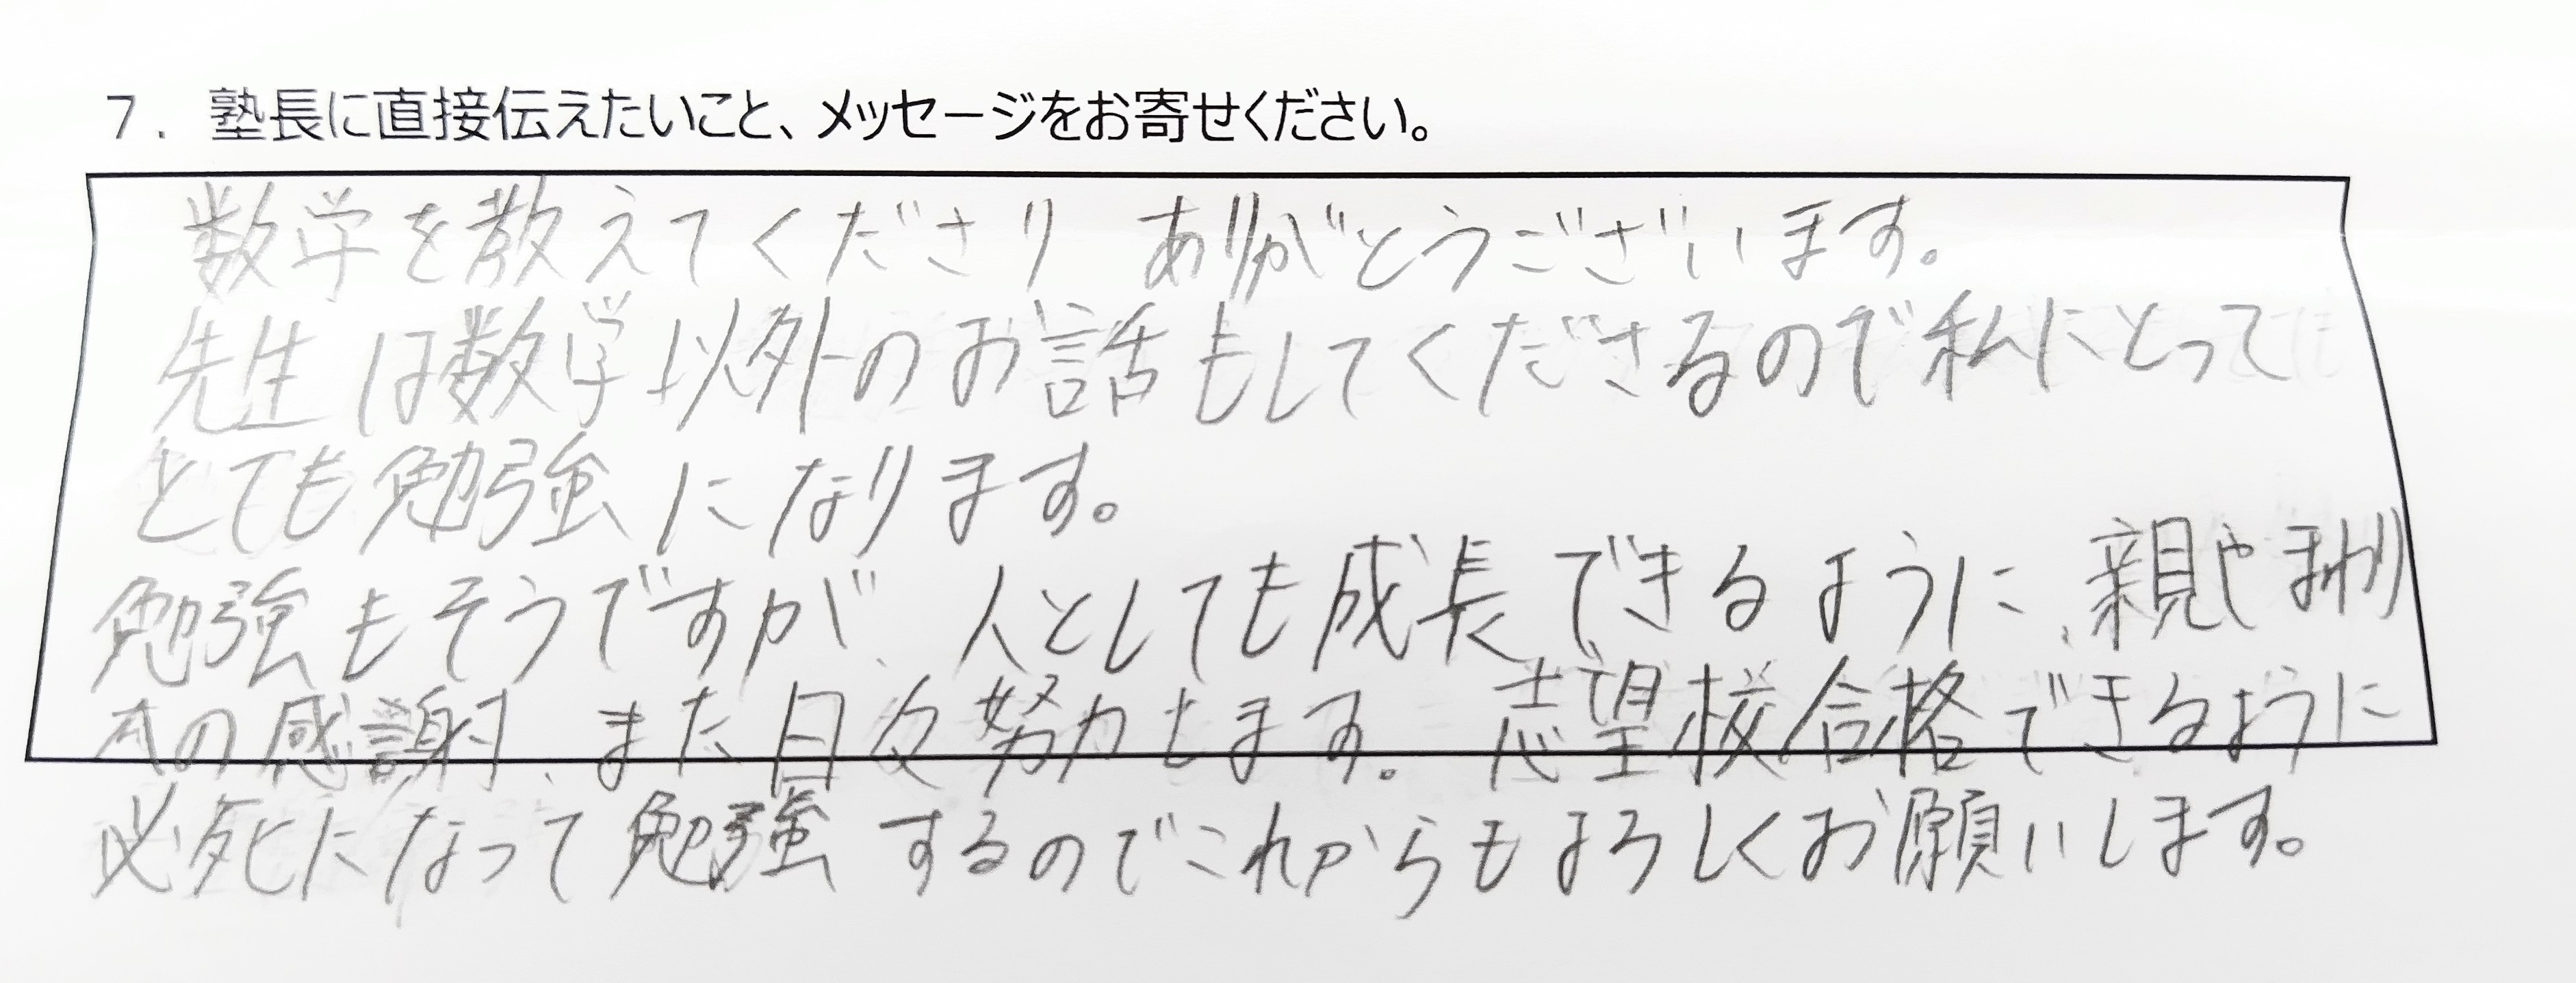 7．塾長に直接伝えたいこと、メッセージをお寄せください。
数学を教えてくださり ありがとうございます。
先生は数学以外のお話もしてくださるので私にとって
とても勉強になります。
勉強もそうですが、人としても成長できるように、親やまわり
の感謝、また日々努力します。志望校合格できるように
必死になって勉強するのでこれからもよろしくお願いします。